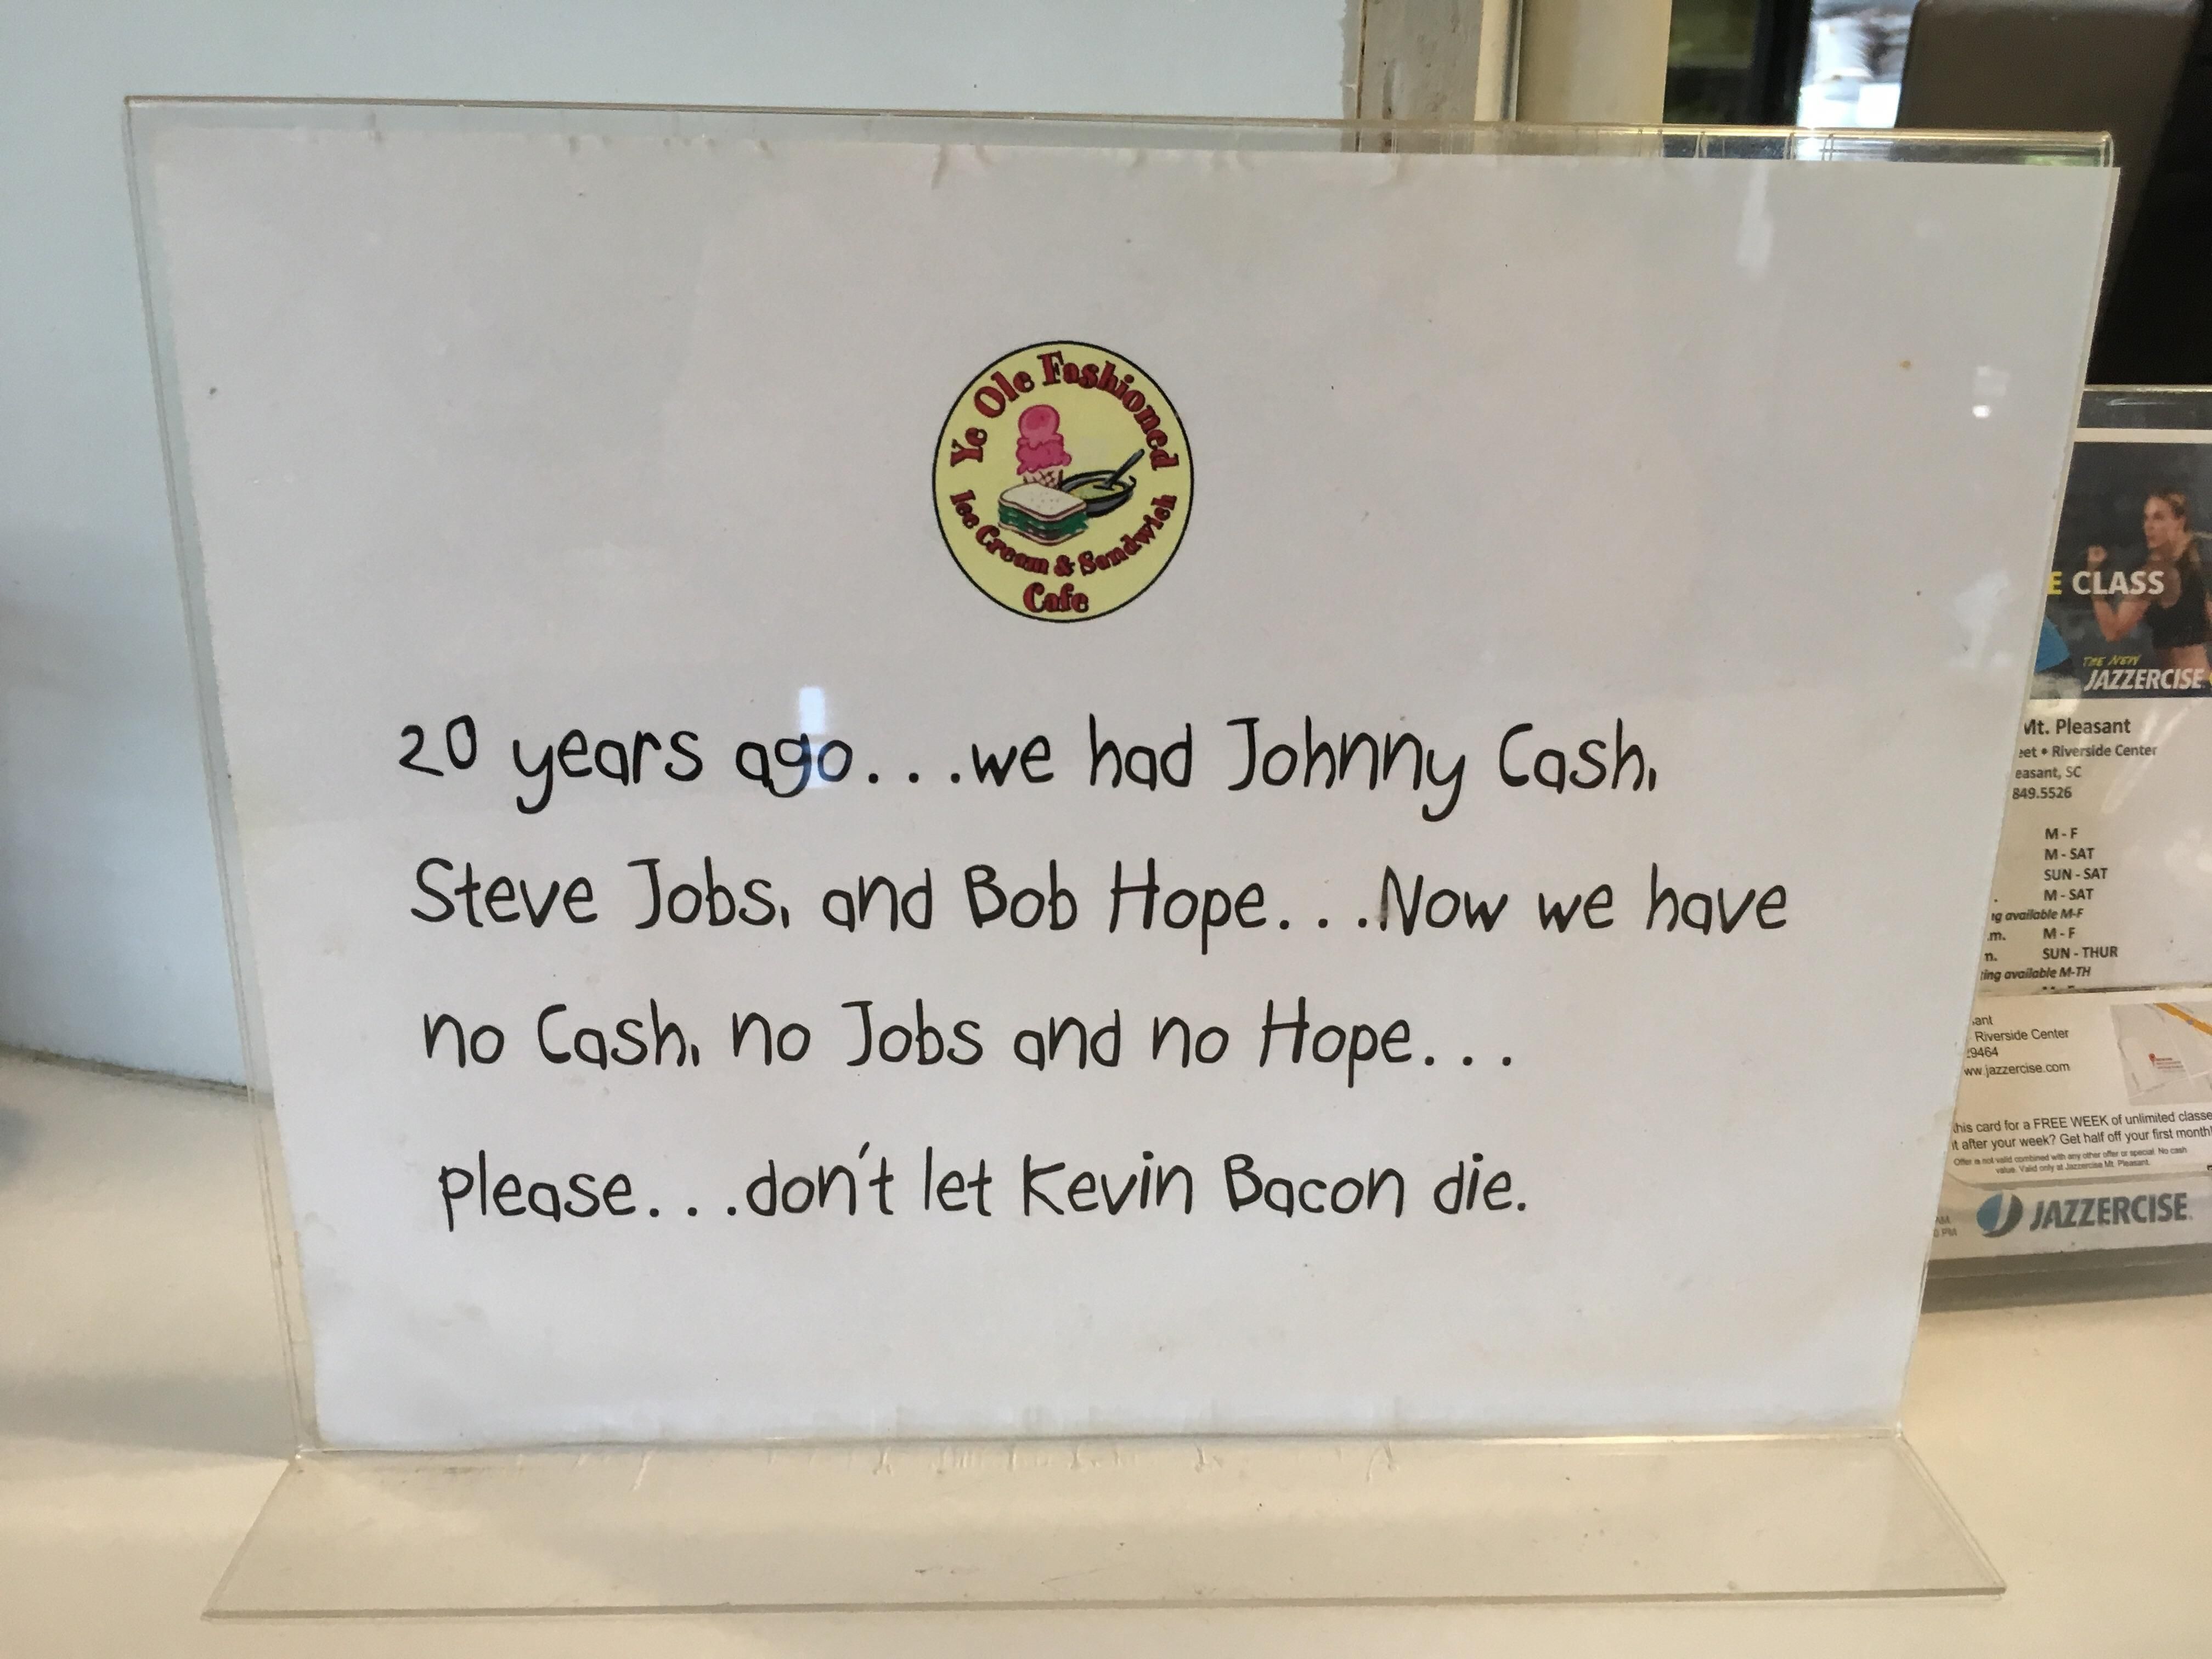 Ye Ole Fashioned
Ice Cream & Sandwich
Cafe
20 years ago...we had Johnny Cash,
Steve Jobs, and Bob Hope...Now we have
no Cash, no Jobs and no Hope...
please...don't let Kevin Bacon die.
E CLASS
THE NEW
JAZZERCISE
Mt. Pleasant
eet • Riverside Center
easant, SC
849.5526
M - F
M - SAT
SUN - SAT
M - SAT
ng available M-F
.m. M - F
n. SUN - THUR
ting available M-TH
ant
Riverside Center
29464
ww.jazzercise.com
this card for a FREE WEEK of unlimited classe
it after your week? Get half off your first month!
Offer is not valid combined with any other offer or special. No cash
value. Valid only at Jazzercise Mt. Pleasant.
JAZZERCISE